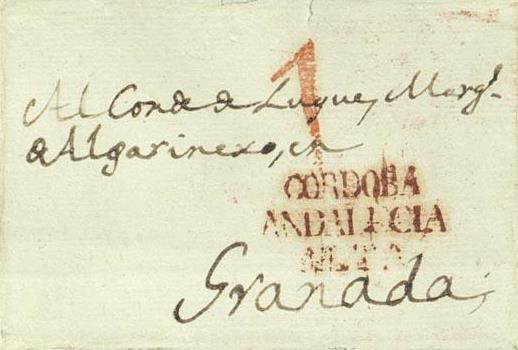 1
Al Conde de Luque, Marqs.
de Algarinexo, en
CORDOBA
ANDALUCIA
ALTA
Granada,